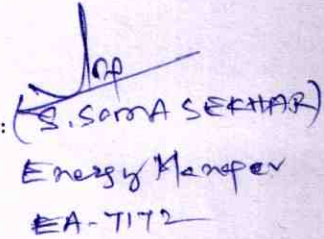 : (S. SOMA SEKHAR)
Energy Manager
EA-7172